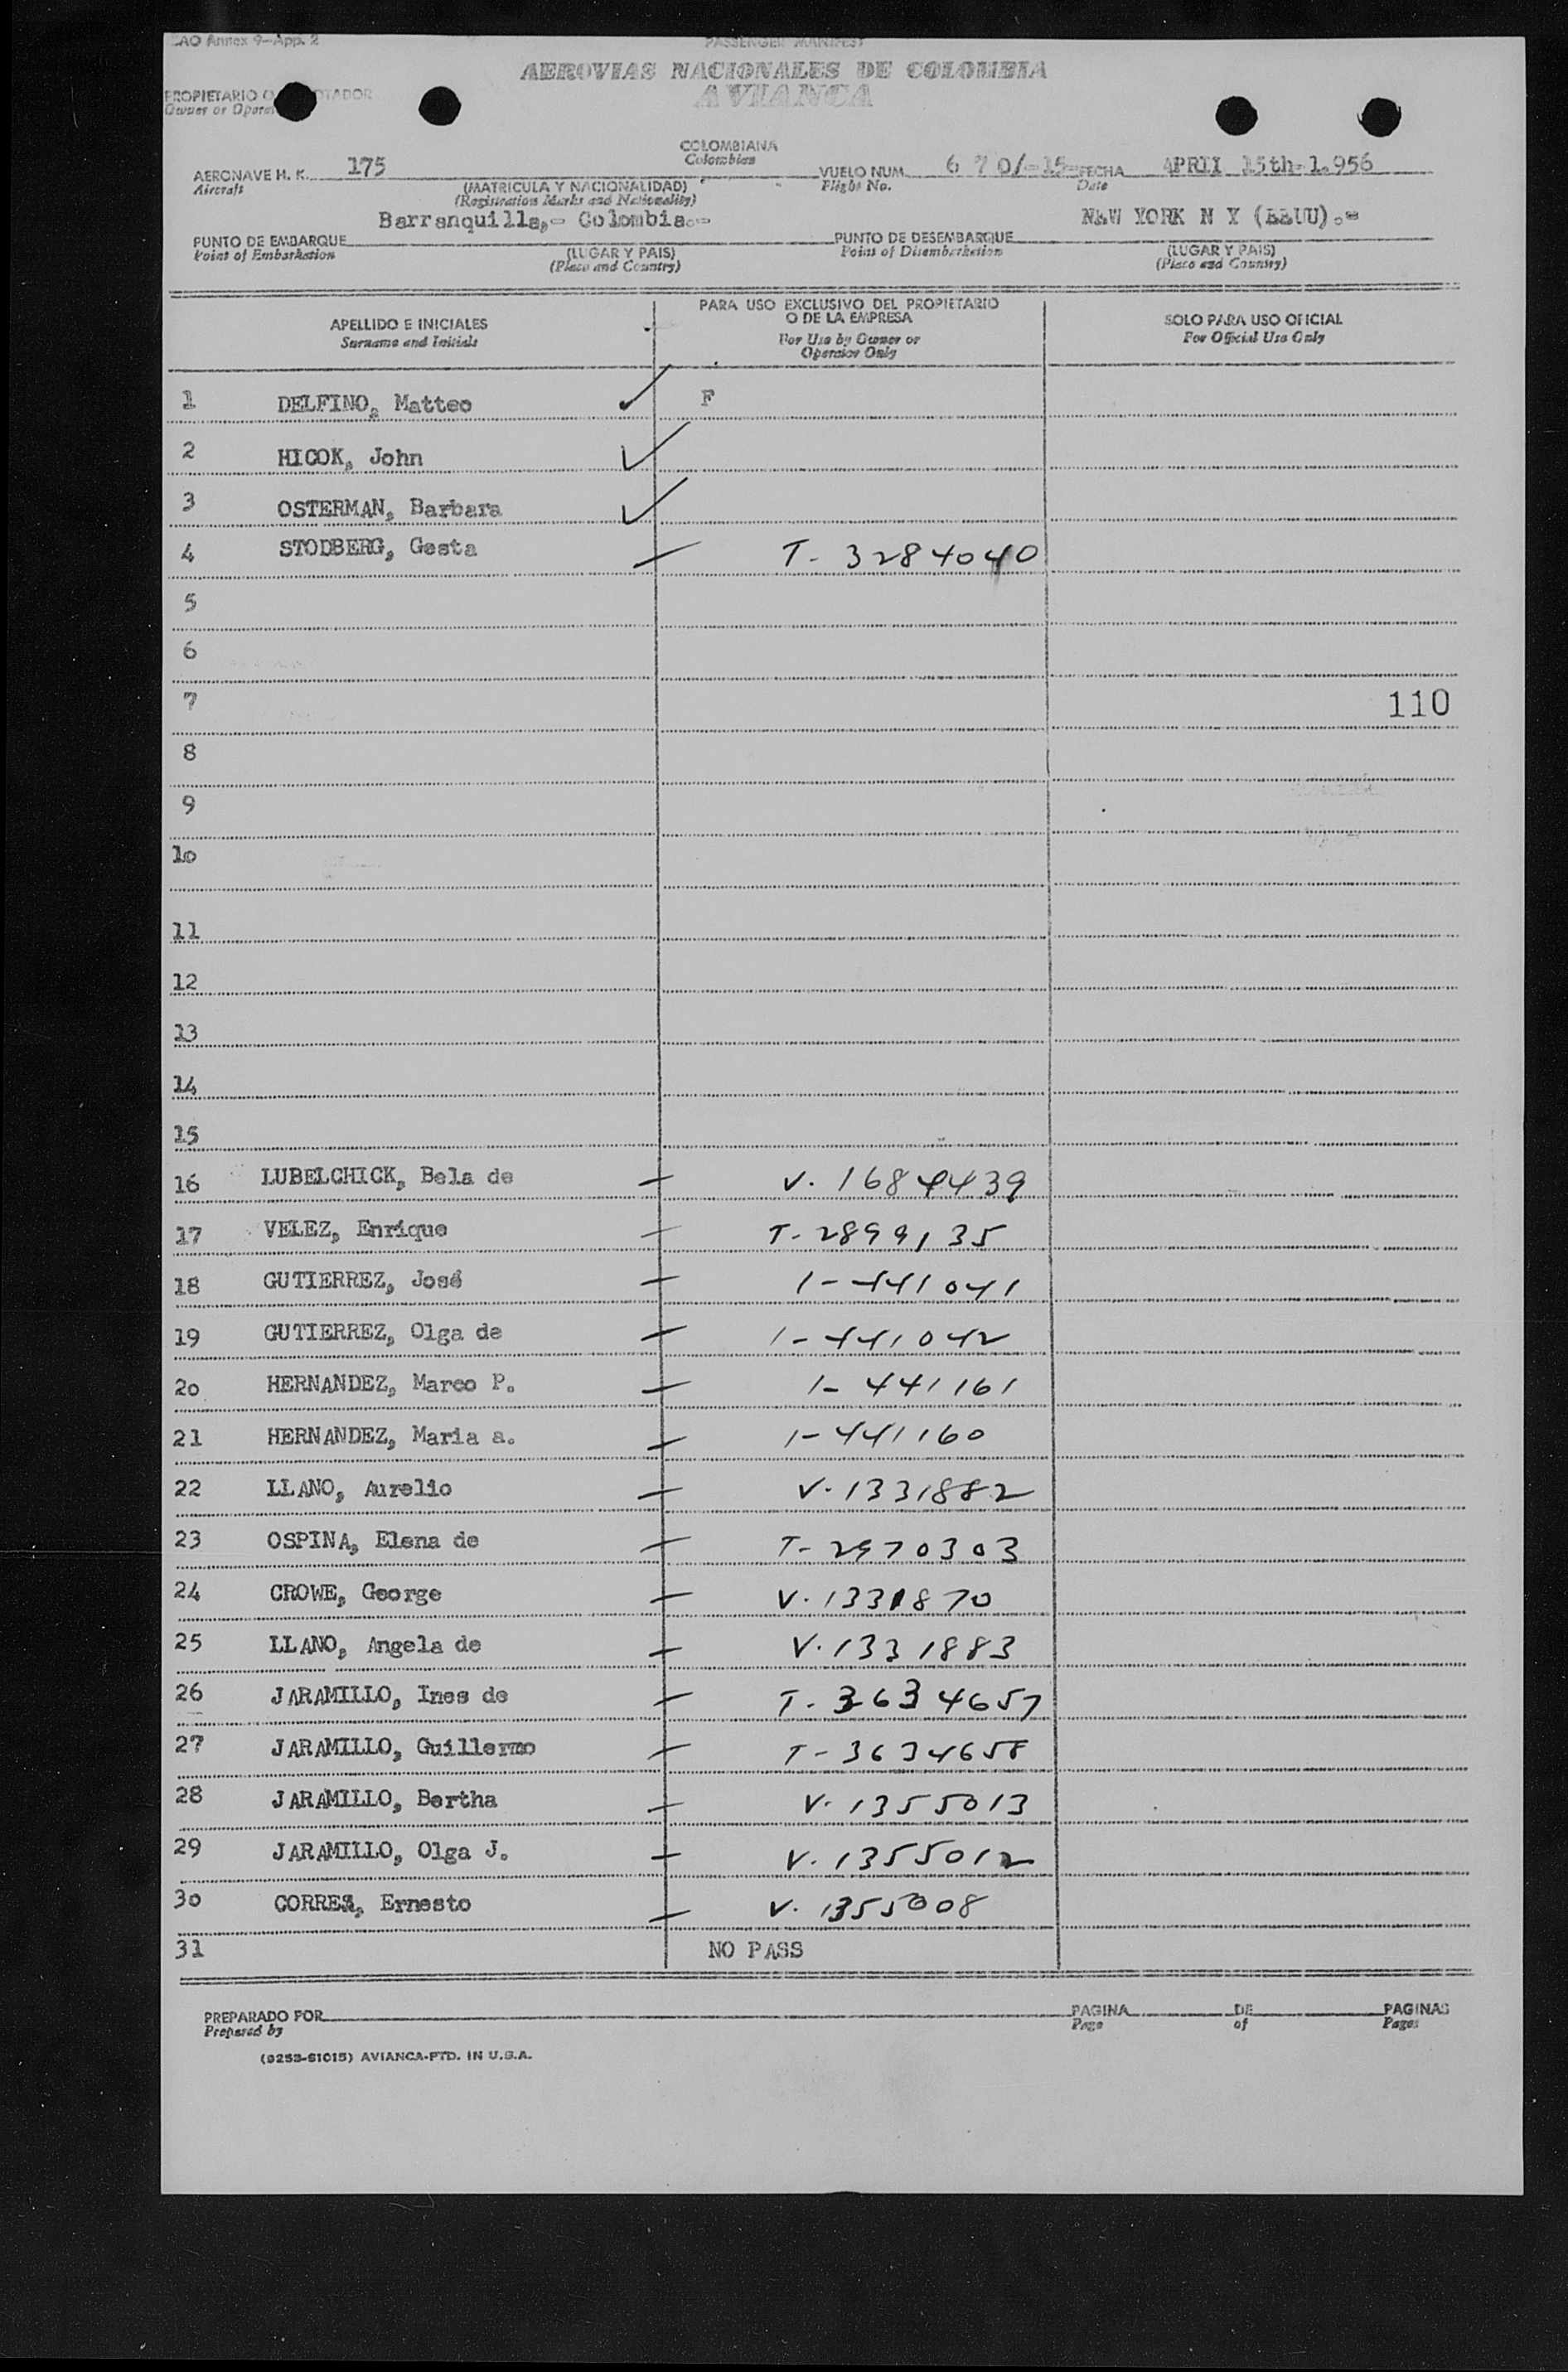 ICAO Annex 9-App. 2
PASSENGER MANIFEST
AEROVIAS NACIONALES DE COLOMBIA
AVIANCA
PROPIETARIO O
Owner or Operator
AERONAVE H. K. 175 COLOMBIANA VUELO NUM. 6 7 0/-15- FECHA APRIL 15th-1.956
Aircraft Colombian Flight No. Date
(MATRICULA Y NACIONALIDAD)
(Registration Marks and Nationality)
PUNTO DE EMBARQUE Barranquilla,- Colombia.- PUNTO DE DESEMBARQUE NEW YORK N Y (EEUU).=
Point of Embarkation (LUGAR Y PAIS) Point of Disembarkation (LUGAR Y PAIS)
(Place and Country) (Place and Country)
APELLIDO E INICIALES PARA USO EXCLUSIVO DEL PROPIETARIO O DE LA EMPRESA SOLO PARA USO OFICIAL
Surname and Initials For Use by Owner or Operator Only For Official Use Only
1 DELFINO, Matteo ✓ F
2 HICOK, John ✓
3 OSTERMAN, Barbara ✓
4 STODBERG, Gesta — T- 3284040
5
6
7 110
8
9
1o
11
12
13
14
15
16 LUBELCHICK, Bela de — V. 1684439
17 VELEZ, Enrique — T-2899135
18 GUTIERREZ, José — 1-441041
19 GUTIERREZ, Olga de — 1-441042
2o HERNANDEZ, Marco P. — 1-441161
21 HERNANDEZ, Maria a. — 1-441160
22 LLANO, Aurelio — V.1331882
23 OSPINA, Elena de — T-2970303
24 CROWE, George — V.1331870
25 LLANO, Angela de — V.1331883
26 JARAMILLO, Ines de — T-3634657
27 JARAMILLO, Guillermo — T-3634658
28 JARAMILLO, Bertha — V.1355013
29 JARAMILLO, Olga J. — V.1355012
3o Ernesto — V.1355008
31 NO PASS
PREPARADO POR PAGINA DE PAGINAS
Prepared by Page of Pages
(9253-61015) AVIANCA-PTD. IN U.S.A.